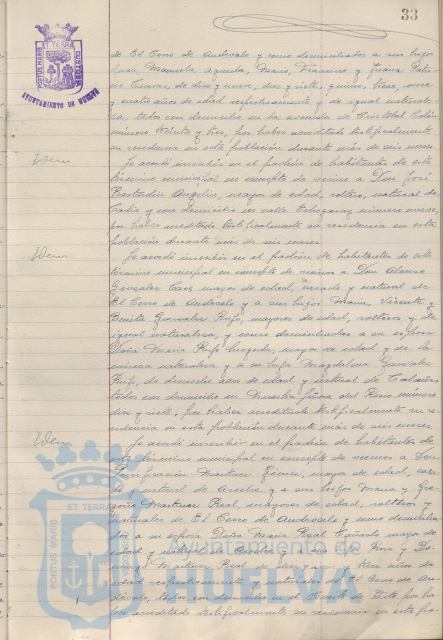 33
PORTUS MARIS ET TERRÆ CUSTODIA
AYUNTAMIENTO DE HUELVA
de El Cerro de Andévalo y como domiciliados a sus hijos
Juan, Manuela, Agueda, María, Francisco y Juana
de diez y nueve, diez y siete, quince, trece,
y cuatro años de edad respectivamente y de igual naturale
za, todos con domicilio en la avenida de Cristobal Colón
número treinta y tres, por haber acreditado testificalmente
su residencia en esta población durante más de seis meses.
Idem
Se acordó inscribir en el padrón de habitantes de este
término municipal en concepto de vecino a Don José
mayor de edad, soltero, natural de
Cádiz y con domicilio en calle Echegaray número nueve,
por haber acreditado testificalmente su residencia en esta
población durante más de seis meses.
Idem
Se acordó inscribir en el padrón de habitantes de este
término municipal en concepto de vecinos a Don Alonso
Gonzalez mayor de edad, casado y natural de
El Cerro de Andévalo y a sus hijos María, Vicente y
Benita Gonzalez Rufo, mayores de edad, solteros y de
igual naturaleza, y como domiciliados a su esposa
Doña María Rufo mayor de edad y de la
misma naturaleza y a su hija Magdalena Gonzalez
Rufo, de años de edad y natural de Calañas
todos con domicilio en Nuestra Señora del Rocío número
diez y siete, por haber acreditado testificalmente su re
sidencia en esta población durante más de seis meses.
Idem
Se acordó inscribir en el padrón de habitantes de
este término municipal en concepto de vecinos a Don
Martinez Gómez, mayor de edad, casa
do, natural de y a sus hijos María y Gre
gorio Martinez Real, mayores de edad, solteros y
naturales de El Cerro de Andévalo y como domicilia
dos a su esposa Doña María Real mayor de
edad y natural de y a sus hijos y Do
Martinez Real de diez y años de
edad respectivamente y naturales de El Cerro de An
dévalo, todos con domicilio en el por ha
ber acreditado testificalmente su residencia en esta po
PORTUS MARIS ET TERRÆ
Ayuntamiento de
HUELVA